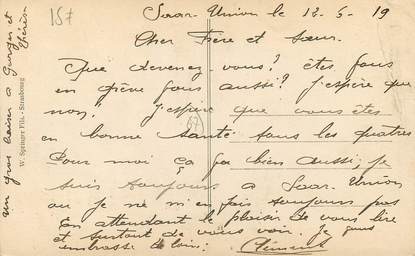 Saar-Union le 12-5-19
Cher Frère et Sœur.
Que devenez-vous? êtes vous
en grève vous aussi? J'espère que
non. J'espère que vous êtes
en bonne santé tous les quatres
Pour moi ça va bien aussi, je
suis toujours a Saar-Union
ou je ne m'en fais toujours pas
En attendant le plaisir de vous lire
et surtout de vous voir. Je vous
embrasse de loin. Clément
un gros baiser a et
W. Springer Fils - Strasbourg
157